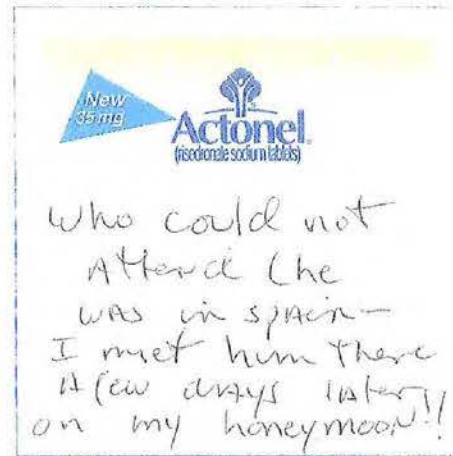 New
35 mg
Actonel®
(risedronate sodium tablets)
who could not
Attend (he
was in spain—
I met him there
A few days later,
on my honeymoon!!